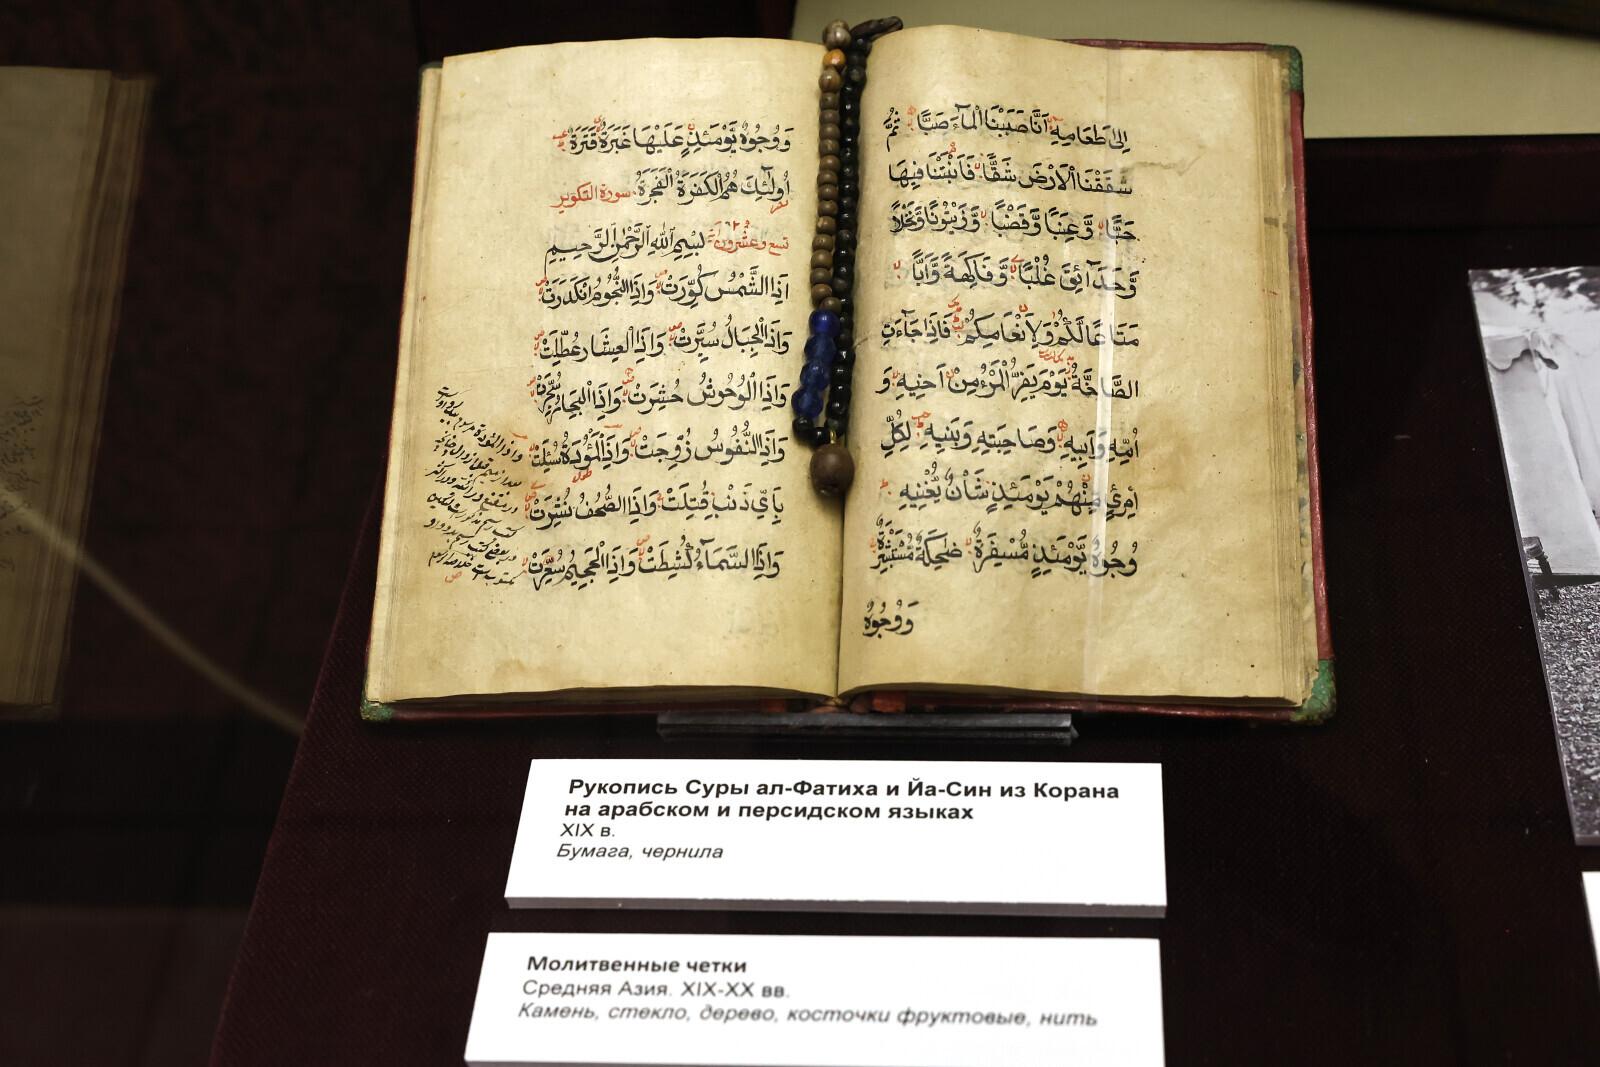 إِلَىٰ طَعَامِهِ أَنَّا صَبَبْنَا الْمَاءَ صَبًّا ثُمَّ
شَقَقْنَا الْأَرْضَ شَقًّا فَأَنْبَتْنَا فِيهَا
حَبًّا وَّعِنَبًا وَّقَضْبًا وَّزَيْتُونًا وَّنَخْلًا
وَّحَدَائِقَ غُلْبًا وَّفَاكِهَةً وَّأَبًّا
مَتَاعًا لَّكُمْ وَلِأَنْعَامِكُمْ فَإِذَا جَاءَتِ
الصَّاخَّةُ يَوْمَ يَفِرُّ الْمَرْءُ مِنْ أَخِيهِ وَ
أُمِّهِ وَأَبِيهِ وَصَاحِبَتِهِ وَبَنِيهِ لِكُلِّ
امْرِئٍ مِّنْهُمْ يَوْمَئِذٍ شَأْنٌ يُّغْنِيهِ
وُجُوهٌ يَّوْمَئِذٍ مُّسْفِرَةٌ ضَاحِكَةٌ مُّسْتَبْشِرَةٌ
وَوُجُوهٌ
وَوُجُوهٌ يَّوْمَئِذٍ عَلَيْهَا غَبَرَةٌ قَتَرَةٌ
أُولَٰئِكَ هُمُ الْكَفَرَةُ الْفَجَرَةُ سورة التكوير
تسع وعشرون آية بِسْمِ اللهِ الرَّحْمٰنِ الرَّحِيمِ
إِذَا الشَّمْسُ كُوِّرَتْ وَإِذَا النُّجُومُ انْكَدَرَتْ
وَإِذَا الْجِبَالُ سُيِّرَتْ وَإِذَا الْعِشَارُ عُطِّلَتْ
وَإِذَا الْوُحُوشُ حُشِرَتْ وَإِذَا الْبِحَارُ سُجِّرَتْ
وَإِذَا النُّفُوسُ زُوِّجَتْ وَإِذَا الْمَوْءُدَةُ سُئِلَتْ
بِأَيِّ ذَنْبٍ قُتِلَتْ وَإِذَا الصُّحُفُ نُشِرَتْ
وَإِذَا السَّمَاءُ كُشِطَتْ وَإِذَا الْجَحِيمُ سُعِّرَتْ
Рукопись Суры ал-Фатиха и Йа-Син из Корана
на арабском и персидском языках
XIX в.
Бумага, чернила
Молитвенные четки
Средняя Азия. XIX-XX вв.
Камень, стекло, дерево, косточки фруктовые, нить